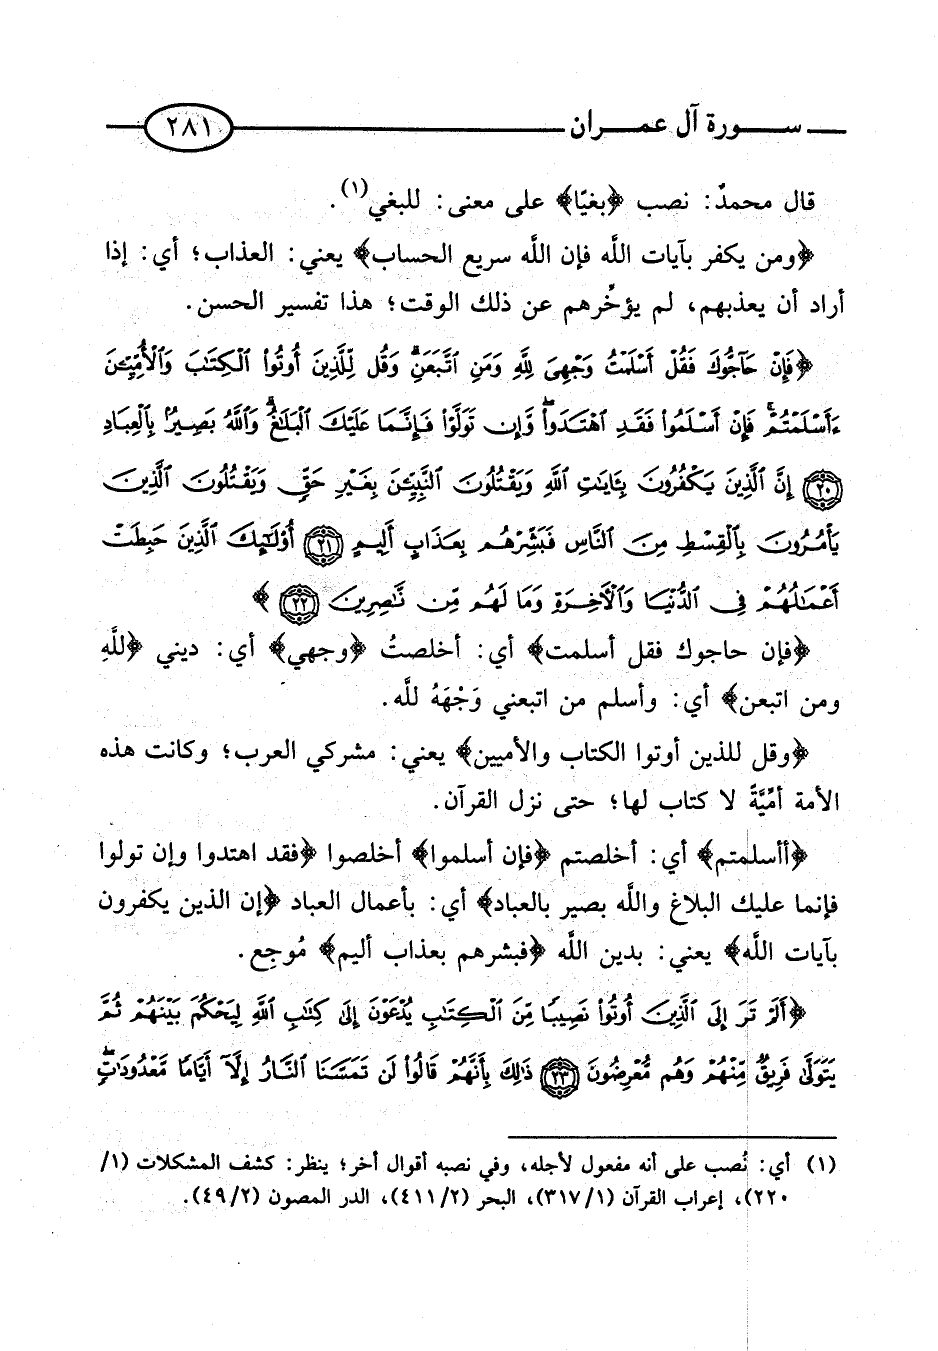 سورة آل عمران ٢٨١
قال محمدٌ: نصب ﴿بغيًا﴾ على معنى: للبغي(١).
﴿ومن يكفر بآيات اللَّه فإن اللَّه سريع الحساب﴾ يعني: العذاب؛ أي: إذا
أراد أن يعذبهم، لم يؤخِّرهم عن ذلك الوقت؛ هذا تفسير الحسن.
﴿فَإِنْ حَآجُّوكَ فَقُلْ أَسْلَمْتُ وَجْهِىَ لِلَّهِ وَمَنِ ٱتَّبَعَنِ ۗ وَقُل لِّلَّذِينَ أُوتُوا۟ ٱلْكِتَٰبَ وَٱلْأُمِّيِّۦنَ
ءَأَسْلَمْتُمْ ۚ فَإِنْ أَسْلَمُوا۟ فَقَدِ ٱهْتَدَوا۟ ۖ وَّإِن تَوَلَّوْا۟ فَإِنَّمَا عَلَيْكَ ٱلْبَلَٰغُ ۗ وَٱللَّهُ بَصِيرٌۢ بِٱلْعِبَادِ
﴿٢٠﴾ إِنَّ ٱلَّذِينَ يَكْفُرُونَ بِـَٔايَٰتِ ٱللَّهِ وَيَقْتُلُونَ ٱلنَّبِيِّۦنَ بِغَيْرِ حَقٍّ وَيَقْتُلُونَ ٱلَّذِينَ
يَأْمُرُونَ بِٱلْقِسْطِ مِنَ ٱلنَّاسِ فَبَشِّرْهُم بِعَذَابٍ أَلِيمٍ ﴿٢١﴾ أُو۟لَٰٓئِكَ ٱلَّذِينَ حَبِطَتْ
أَعْمَٰلُهُمْ فِى ٱلدُّنْيَا وَٱلْءَاخِرَةِ وَمَا لَهُم مِّن نَّٰصِرِينَ ﴿٢٢﴾ ﴾
﴿فإن حاجوك فقل أسلمت﴾ أي: أخلصتُ ﴿وجهي﴾ أي: ديني ﴿للَّهِ
ومن اتبعن﴾ أي: وأسلم من اتبعني وَجْهَهُ للَّه.
﴿وقل للذين أوتوا الكتاب والأميين﴾ يعني: مشركي العرب؛ وكانت هذه
الأمة أمِّيَّةً لا كتاب لها؛ حتى نزل القرآن.
﴿أأسلمتم﴾ أي: أخلصتم ﴿فإن أسلموا﴾ أخلصوا ﴿فقد اهتدوا وإن تولوا
فإنما عليك البلاغ واللَّه بصير بالعباد﴾ أي: بأعمال العباد ﴿إن الذين يكفرون
بآيات اللَّه﴾ يعني: بدين اللَّه ﴿فبشرهم بعذاب أليم﴾ مُوجِع.
﴿أَلَمْ تَرَ إِلَى ٱلَّذِينَ أُوتُوا۟ نَصِيبًا مِّنَ ٱلْكِتَٰبِ يُدْعَوْنَ إِلَىٰ كِتَٰبِ ٱللَّهِ لِيَحْكُمَ بَيْنَهُمْ ثُمَّ
يَتَوَلَّىٰ فَرِيقٌ مِّنْهُمْ وَهُم مُّعْرِضُونَ ﴿٢٣﴾ ذَٰلِكَ بِأَنَّهُمْ قَالُوا۟ لَن تَمَسَّنَا ٱلنَّارُ إِلَّآ أَيَّامًا مَّعْدُودَٰتٍ ۖ
(١) أي: نُصب على أنه مفعول لأجله، وفي نصبه أقوال أخر؛ ينظر: كشف المشكلات (١/
٢٢٠)، إعراب القرآن (٣١٧/١)، البحر (٤١١/٢)، الدر المصون (٤٩/٢).